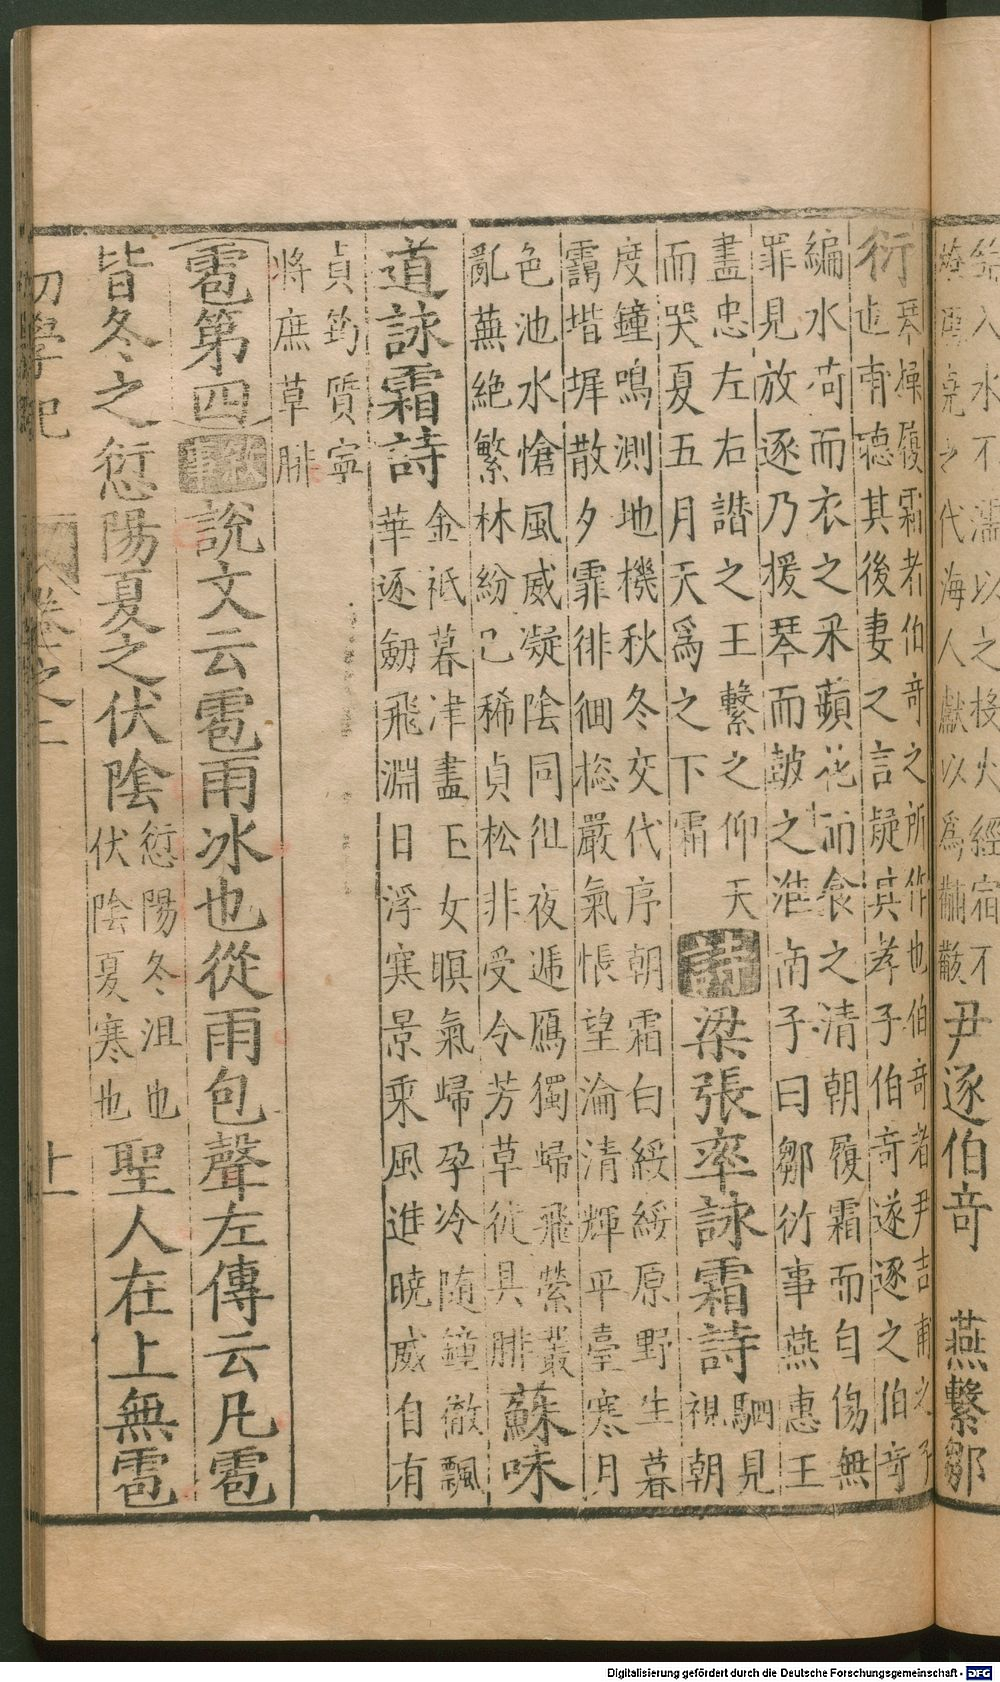 綌入水不濡以之投火經宿不
燎唐堯之代海人獻以爲黼黻
尹逐伯奇　燕繫鄒
衍
琴操履霜者伯奇之所作也伯奇者尹吉甫之子
也甫聽其後妻之言疑其孝子伯奇遂逐之伯奇
編水荷而衣之采蘋花而食之清朝履霜而自傷無
罪見放逐乃援琴而鼓之淮南子曰鄒衍事燕惠王
盡忠左右譖之王繫之仰天
而哭夏五月天爲之下霜
詩
梁張率詠霜詩
駟見
視朝
度鐘鳴測地機秋冬交代序朝霜白綏綏原野生暮
靄堦墀散夕霏徘徊捴嚴氣悵望淪清輝平臺寒月
色池水愴風威凝陰同徂夜遞鴈獨歸飛縈叢
亂蕪絕繁林紛已稀貞松非受令芳草徒具腓
蘇味
道詠霜詩
金祇暮津盡玉女暝氣歸孕冷隨鐘徹飄
華逐劒飛淵日浮寒景乘風進曉威自有
貞筠質寧
將庶草腓
雹第四
敘事
說文云雹雨冰也從雨包聲左傳云凡雹
皆冬之愆陽夏之伏陰
愆陽冬沮也
伏陰夏寒也
聖人在上無雹
初學記　卷之二　上
Digitalisierung gefördert durch die Deutsche Forschungsgemeinschaft - DFG